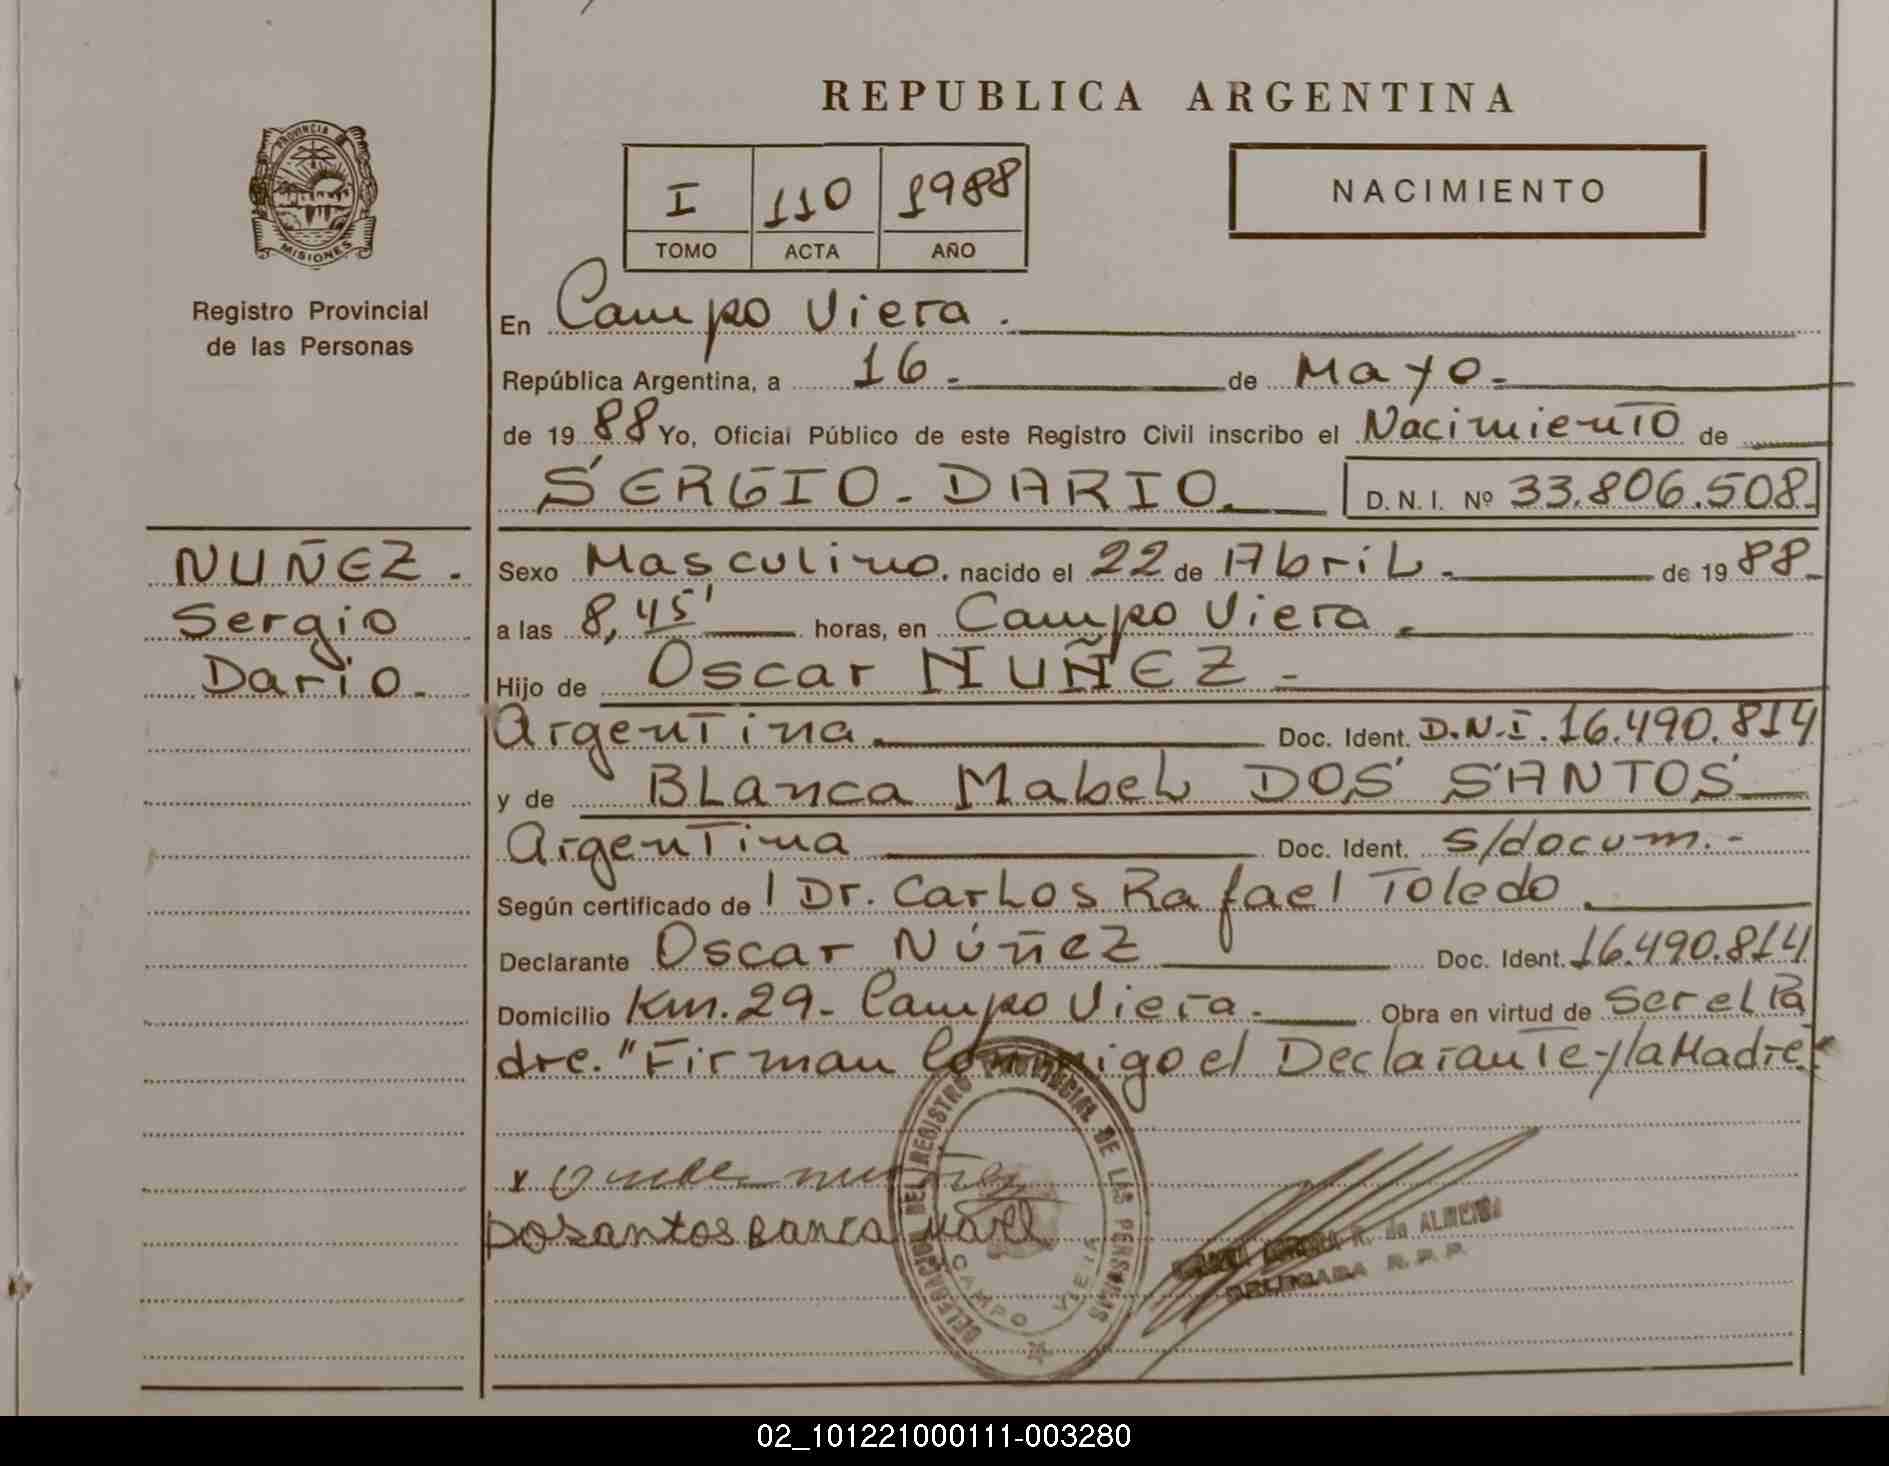 REPUBLICA ARGENTINA
PROVINCIA DE
MISIONES
Registro Provincial
de las Personas
I 110 1988
TOMO ACTA AÑO
NACIMIENTO
En Campo Viera.
República Argentina, a 16 de Mayo
de 1988 Yo, Oficial Público de este Registro Civil inscribo el Nacimiento de
SERGIO - DARIO. D. N. I. Nº 33.806.508
NUÑEZ.
Sergio
Dario.
Sexo Masculino. nacido el 22 de Abril de 1988
a las 8,45' horas, en Campo Viera.
Hijo de Oscar NUÑEZ
Argentina Doc. Ident. D.N.I. 16.490.814
y de Blanca Mabel DOS SANTOS
Argentina Doc. Ident. s/docum.-
Según certificado de l Dr. Carlos Rafael Toledo
Declarante Oscar Núñez Doc. Ident. 16.490.814
Domicilio Km. 29 - Campo Viera. Obra en virtud de ser el Pa
dre. "Firman Conmigo el Declarante y la Madre"
DELEGACION DEL REGISTRO PROVINCIAL DE LAS PERSONAS
CAMPO VIERA
R. de ALMEIDA
DELEGADA R. P. P.
02_101221000111-003280